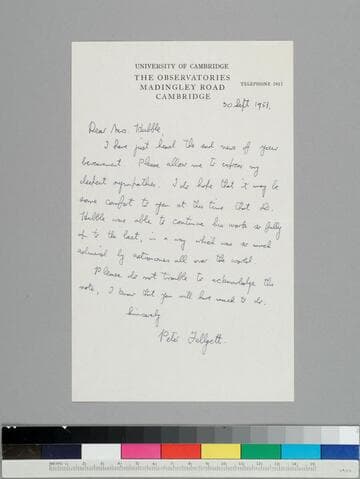 UNIVERSITY OF CAMBRIDGE
THE OBSERVATORIES
MADINGLEY ROAD
CAMBRIDGE
TELEPHONE
30 Sept 1953.
Dear Mrs. Hubble,
I have just heard the sad news of your
bereavement. Please allow me to express my
deepest sympathies. I do hope that it may be
some comfort to you at this time that Dr.
Hubble was able to continue his works so fully
up to the last, in a way which was so much
admired by astronomers all over the world.
Please do not trouble to acknowledge this
note, I know that you will have much to do.
Sincerely
Peter Fellgett.